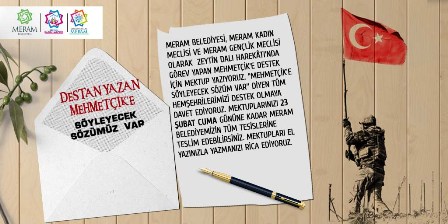 MERAM
DESTAN YAZAN
MEHMETÇİK'E
SÖYLEYECEK
SÖZÜMÜZ VAR
MERAM BELEDİYESİ, MERAM KADIN
MECLİSİ VE MERAM GENÇLİK MECLİSİ
OLARAK ZEYTİN DALI HAREKÂTINDA
GÖREV YAPAN MEHMETÇİK'E DESTEK
İÇİN MEKTUP YAZIYORUZ. "MEHMETÇİK'E
SÖYLEYECEK SÖZÜM VAR" DİYEN TÜM
HEMŞEHRİLERİMİZİ DESTEK OLMAYA
DAVET EDİYORUZ. MEKTUPLARINIZI 23
ŞUBAT CUMA GÜNÜNE KADAR MERAM
BELEDİYEMİZİN TÜM TESİSLERİNE
TESLİM EDEBİLİRSİNİZ. MEKTUPLARI EL
YAZINIZLA YAZMANIZI RİCA EDİYORUZ.